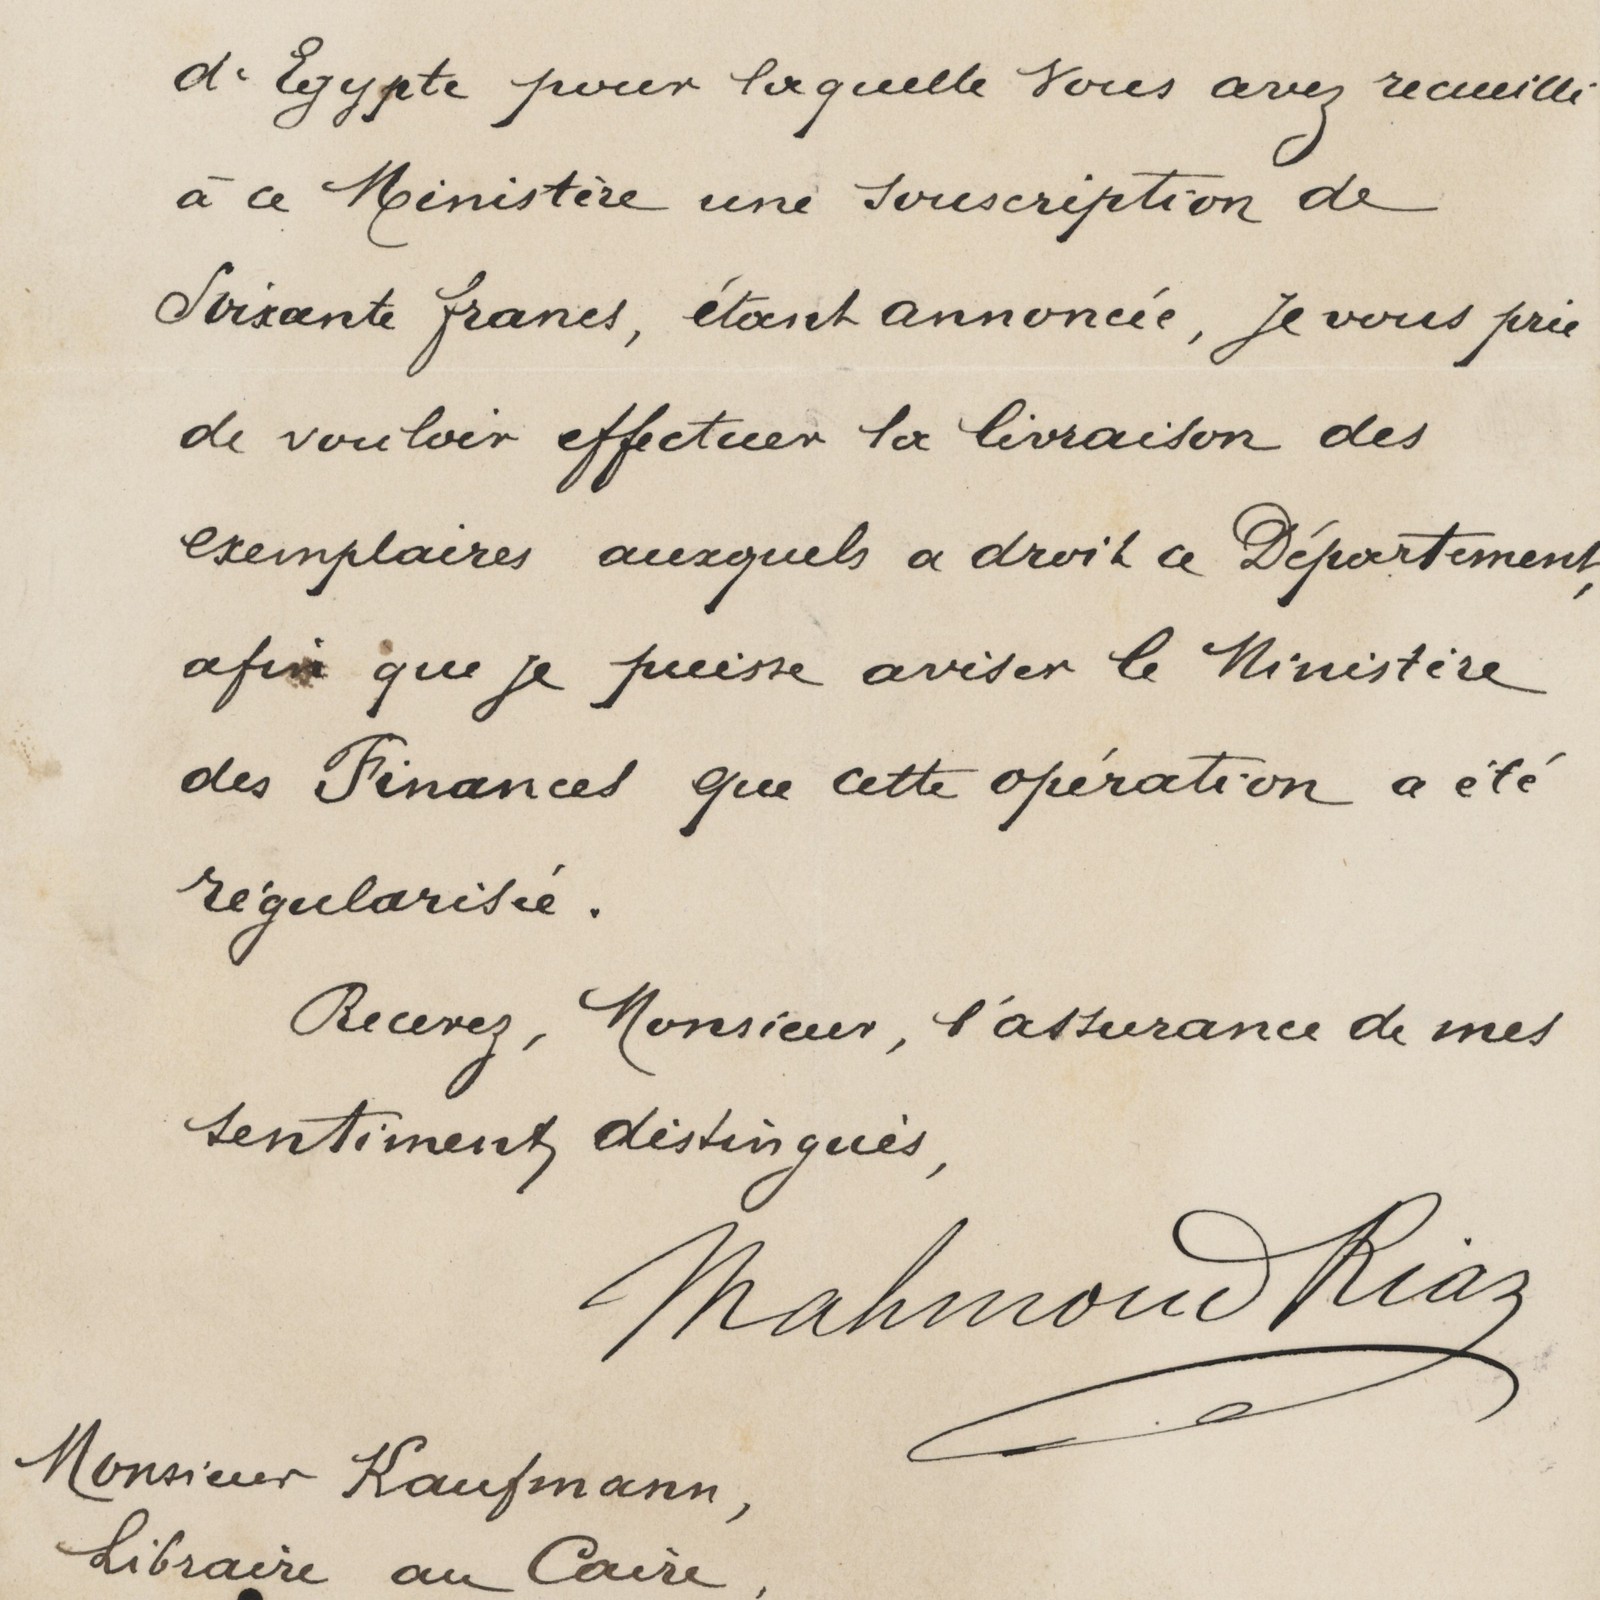 d'Egypte pour laquelle Vous avez recueilli
à ce Ministère une souscription de
Soixante francs, étant annoncée, je vous prie
de vouloir effectuer la livraison des
exemplaires auxquels a droit ce Département,
afin que je puisse aviser le Ministère
des Finances que cette opération a été
régularisée.
Recevez, Monsieur, l'assurance de mes
sentiments distingués,
Mahmoud Riaz
Monsieur Kaufmann,
Libraire au Caire,